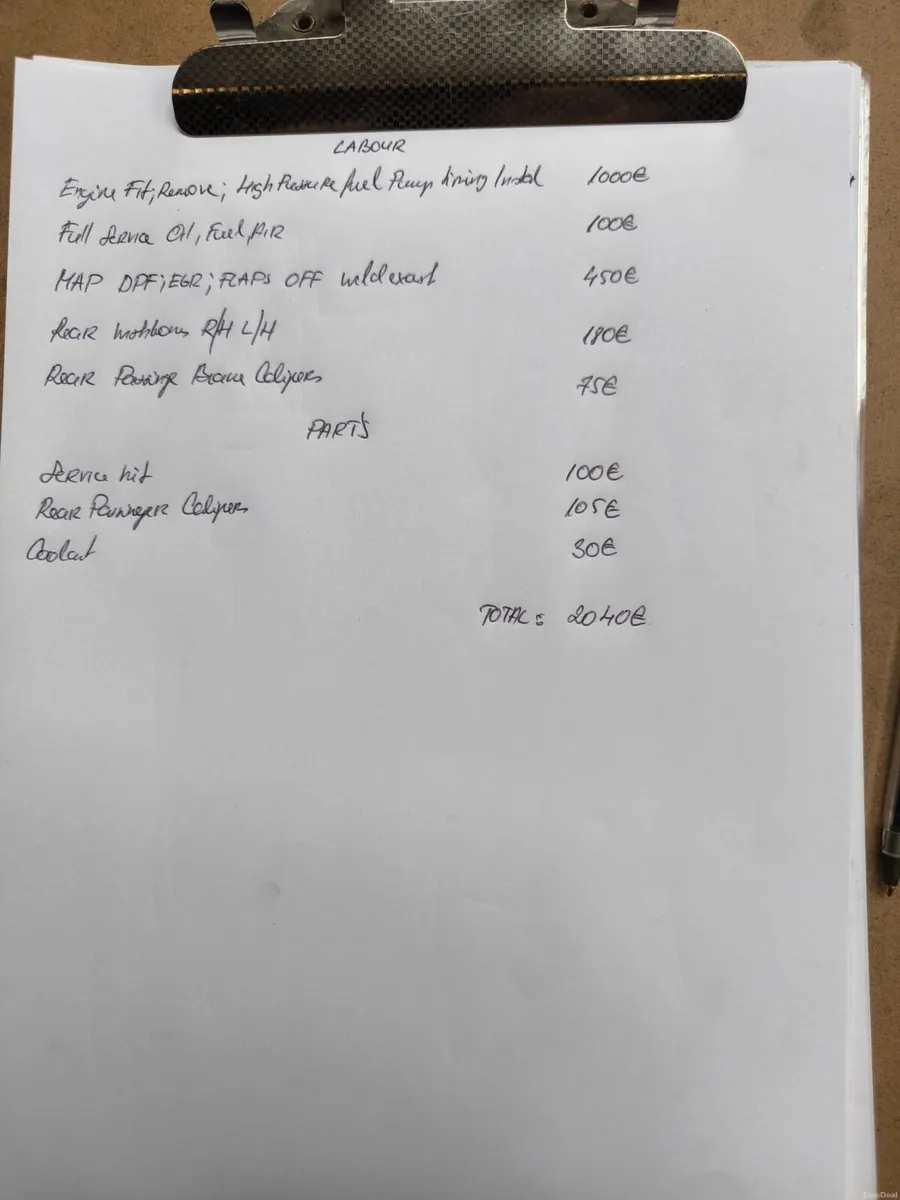 LABOUR
Engine Fit, Remove; High Pressure fuel Pump timing Instal 1000€
Full Service Oil, Fuel, AIR 100€
MAP DPF; EGR; FLAPS OFF weld exast 450€
Rear R/H L/H 180€
Rear Calipers 75€
PARTS
Service kit 100€
Rear Calipers 105€
Coolant 30€
TOTAL: 2040€
DoneDeal